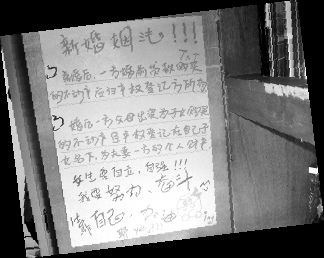 新婚姻法!!!
① 离婚后,一方婚前贷款购买
的不动产应归产权登记方所有
② 婚后一方父母出资为子女购买
的不动产且产权登记在自己子
女名下,为夫妻一方的个人财产
女生要自立、自强!!!
我要努力、奋斗
靠自己,加油